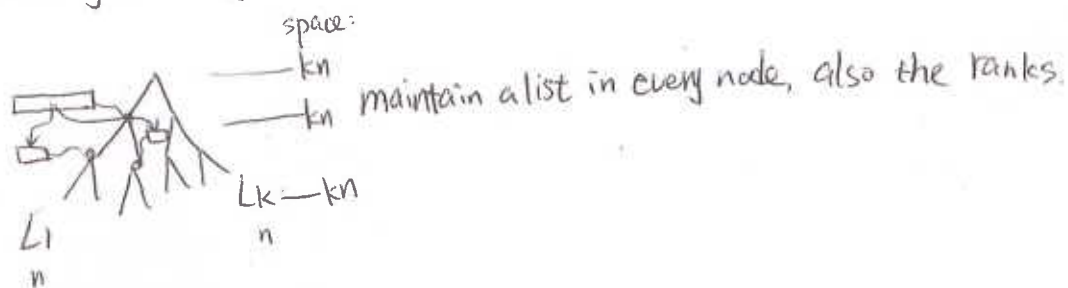 space:
kn
kn maintain a list in every node, also the ranks.
Lk — kn
n
L1
n